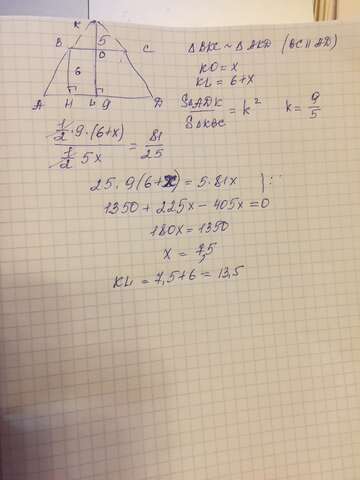 K
5
B O C
6
A H L 9 D
△BKC ~ △AKD (BC || AD)
KO = x
KL = 6+x
S△ADK / S△KBC = k² k = 9/5
1/2 · 9 · (6+x) / 1/2 · 5x = 81/25
25 · 9(6+x) = 5 · 81x | :
1350 + 225x − 405x = 0
180x = 1350
x = 7,5
KL = 7,5+6 = 13,5